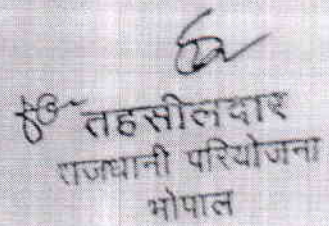 तहसीलदार
राजधानी परियोजना
भोपाल